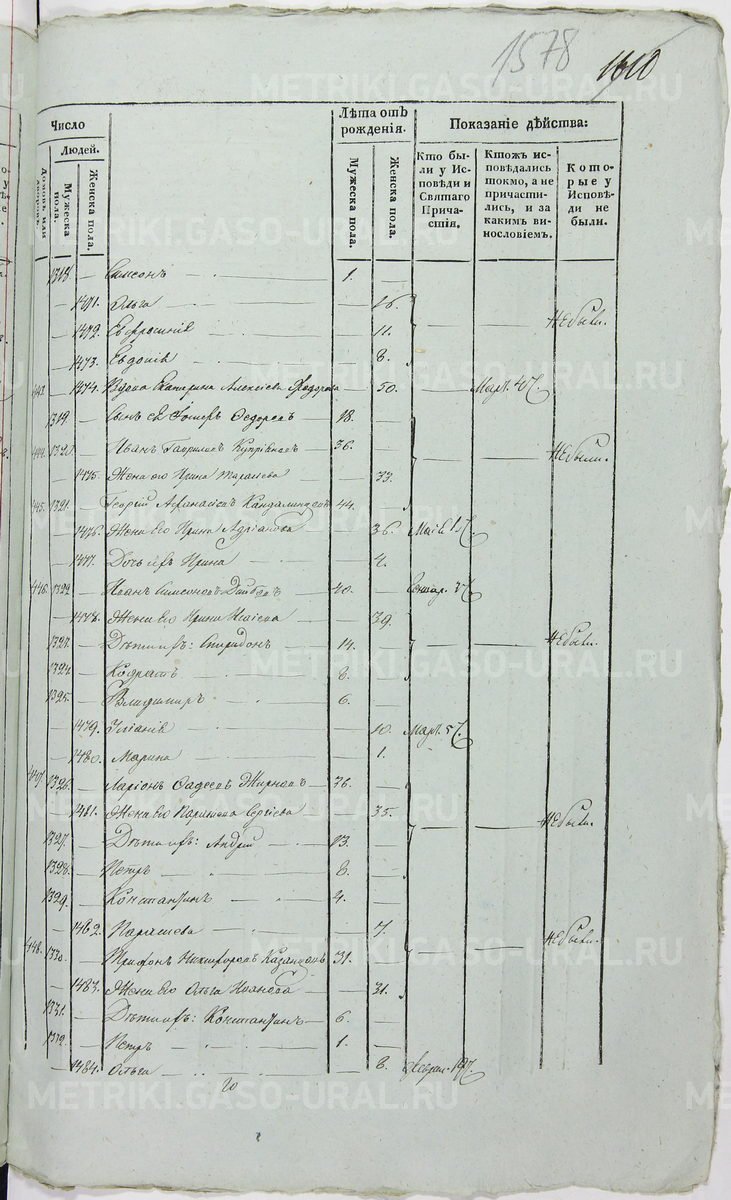 1578 1610
Число
Людей.
Домовъ или дворовъ.
Мужеска пола.
Женска пола.
Лѣта отъ рожденія.
Мужеска пола.
Женска пола.
Показаніе дѣйства:
Кто были у Исповѣди и Святаго Причастія.
Ктожъ исповѣдались токмо, а не причастились, и за какимъ винословіемъ.
Которые у Исповѣди не были.
1318 — Самсонъ — 1. —
— 1471. Ольга — — 16.
— 1472. Евфросинія — — 11. — — Не были.
— 1473. Евдокія — — 8.
443. — 1474. Вдова Екатерина Алексіева Ѳедорова — 50. — Март. 4
1319 — Сынъ ея Ѳедоровъ 18. —
444. 1320 — Иванъ Гавриловъ 36. — — — Не были.
— 1475. Жена его Ирина — 33.
445. 1321. Георгій Аѳанасіевъ 44. —
— 1476. Жена его Ирина Адріанова — 36.
— 1477. Дочь ихъ Ирина — 4.
446. 1322 — Иванъ Самсоновъ 40. —
— 1478. Жена его Ирина Исаіева — 39.
1323. — Дѣти ихъ: Спиридонъ 14. — — — Не были.
1324. — Кодратъ 8. —
1325. — Владимиръ 6. —
— 1479. — 10. Март. 5
— 1480. Марина — 1.
447. 1326. — Ларіонъ 36. —
— 1481. Жена его Сергіева — 35. — — Не были.
1327. — Дѣти ихъ: Андрей 13. —
1328. — Петръ 8. —
1329. — Константинъ 4. —
— 1482. — 7. — — Не были.
448. 1330. — Трифонъ Никифоровъ 31. —
— 1483. Жена его Ольга Иванова — 31.
1331. — Дѣти ихъ: Константинъ 6. —
1332. — Петръ 1. —
— 1484. Ольга — 8. Феврал. 19
METRIKI.GASO-URAL.RU